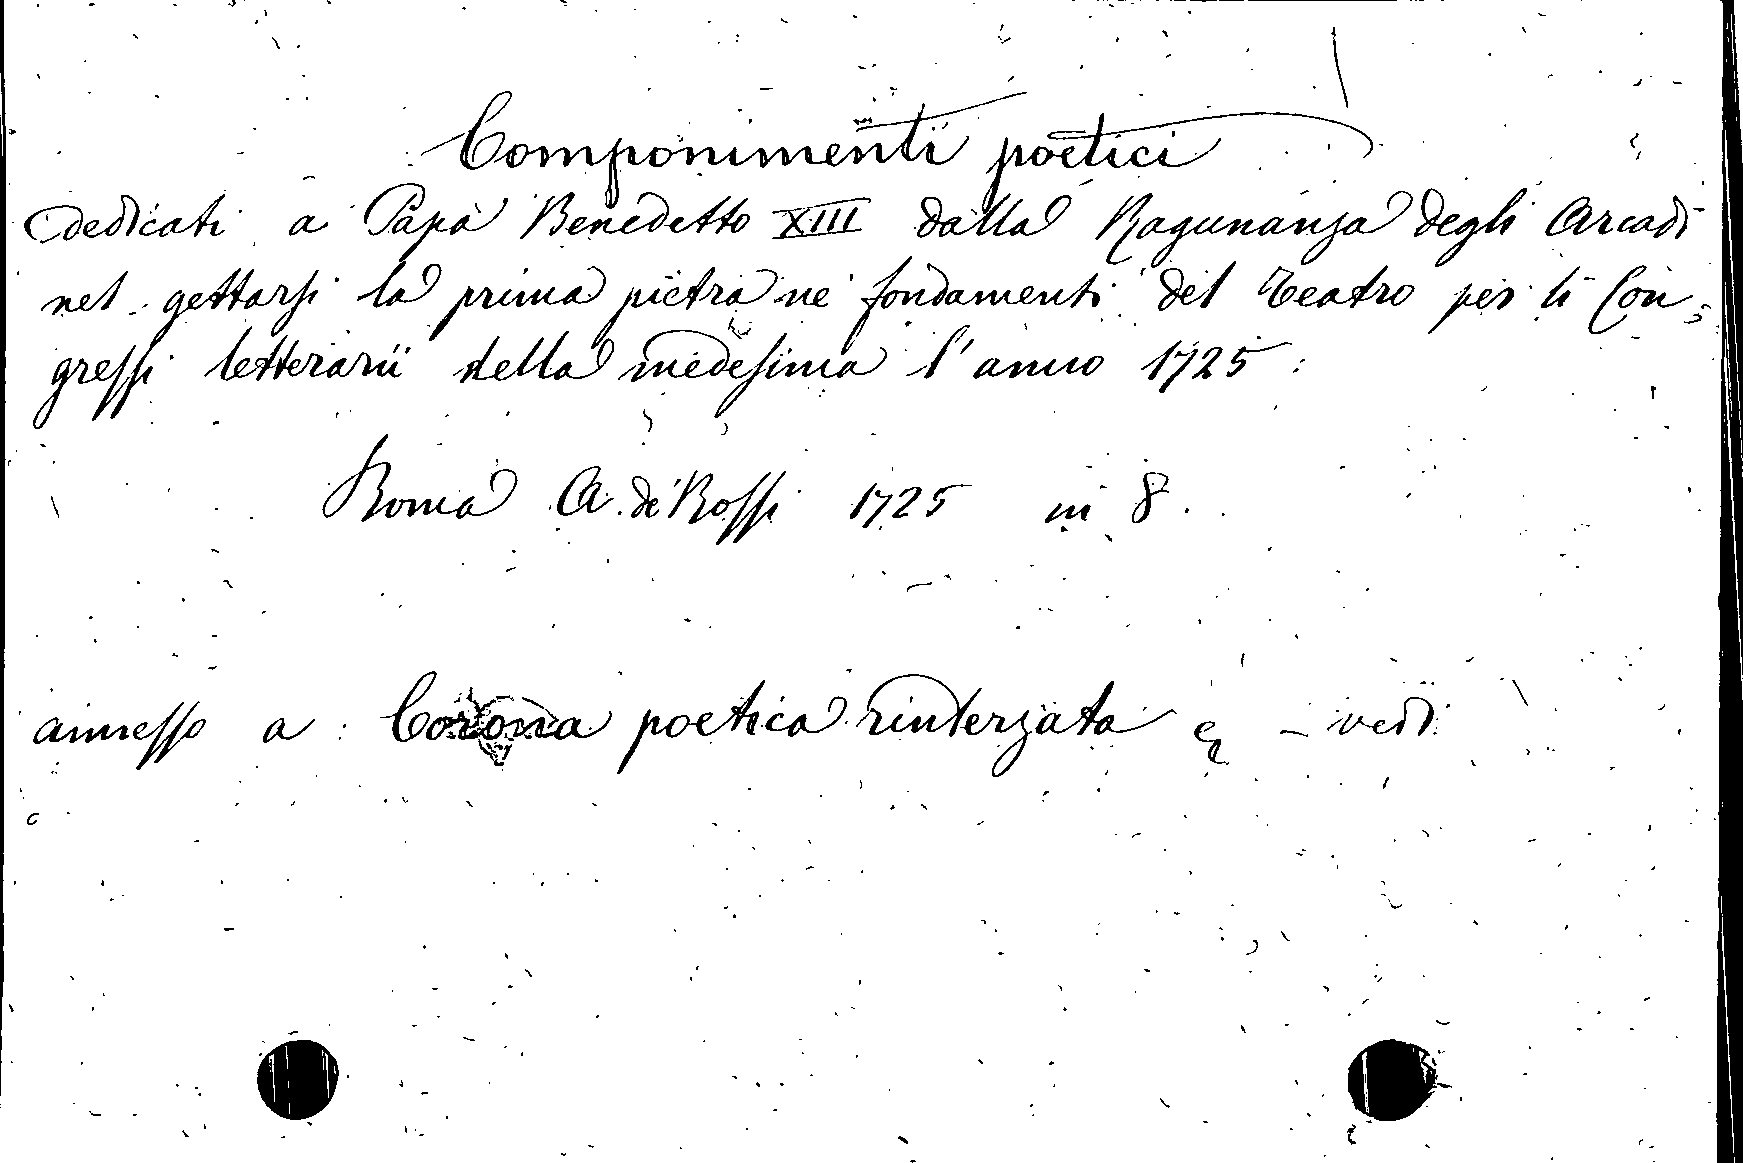 Componimenti poetici
Dedicati a Papa Benedetto XIII dalla Ragunanza degli Arcadi
nel gettarsi la prima pietra ne' fondamenti del Teatro per li Con=
gressi letterarii della medesima l'anno 1725:
Roma A. de' Rossi 1725 in 8.
annesso a: Corona poetica rinterzata & – vedi